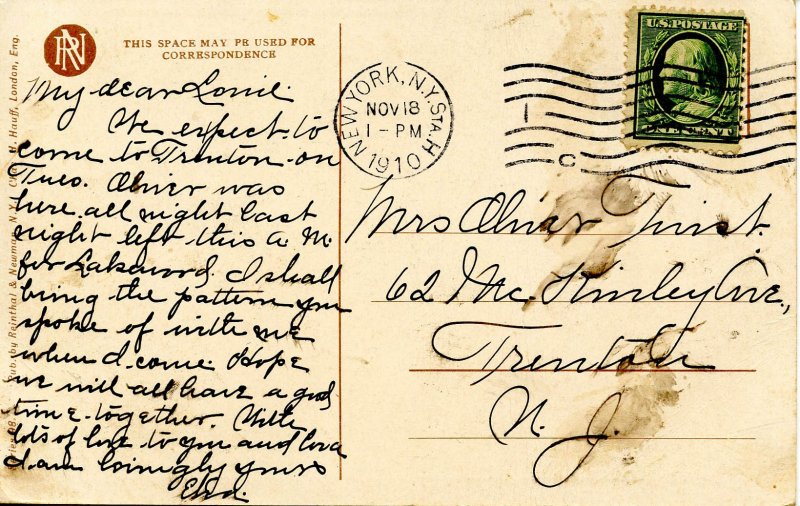 RN
THIS SPACE MAY BE USED FOR
CORRESPONDENCE
My dear Lonie.
We expect to
come to Trenton on
Tues. Oliver was
here all night last
night left this A. M.
for Lakewood. I shall
bring the pattern you
spoke of with me
when I come. Hope
we will all have a good
time together. With
lots of love to you and
I am lovingly yours
NEW YORK, N.Y. STA. H
NOV 18
1 - PM
1910
1
C
U.S. POSTAGE
CENT
Mrs Oliver
62 Mc. Kinley Ave,
Trenton
N. J.
Pub. by Reinthal & Newman, N.Y. Hauff, London, Eng.